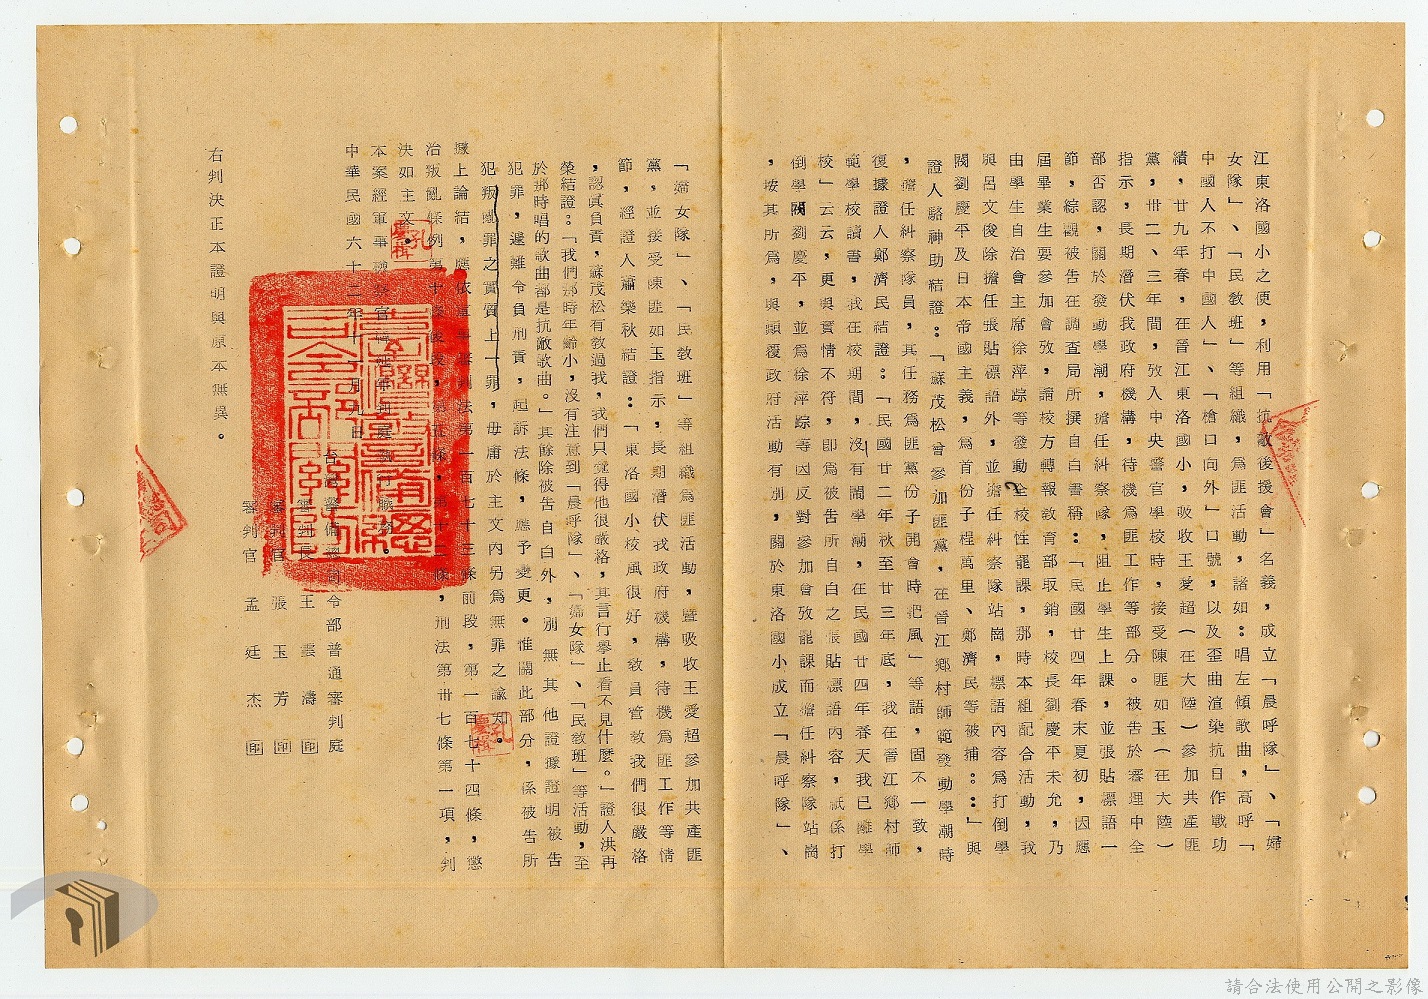 江東洛國小之便，利用「抗敵後援會」名義，成立「晨呼隊」、「婦
女隊」、「民教班」等組織，為匪活動，諸如：唱左傾歌曲，高呼「
中國人不打中國人」、「槍口向外」口號，以及歪曲渲染抗日作戰功
績，廿九年春，在晉江東洛國小，吸收王愛超（在大陸）參加共產匪
黨，卅二、三年間，攷入中央警官學校時，接受陳匪如玉（在大陸）
指示，長期潛伏我政府機構，待機為匪工作等部分。被告於審理中全
部否認，關於發動學潮，擔任糾察隊，阻止學生上課，並張貼標語一
節，綜觀被告在調查局所撰自白書稱：「民國廿四年春末夏初，因應
屆畢業生要參加會攷，請校方轉報教育部取銷，校長劉慶平未允，乃
由學生自治會主席徐萍踪等發動全校性罷課，那時本組配合活動，我
與呂文俊除擔任張貼標語外，並擔任糾察隊站崗，標語內容為打倒學
閥劉慶平及日本帝國主義，為首份子桯萬里、鄭濟民等被捕：：」與
證人駱神助結證：「蘇茂松曾參加匪黨，在晉江鄉村師範發動學潮時
，擔任糾察隊員，其任務為匪黨份子開會時把風」等語，固不一致，
復據證人鄭濟民結證：「民國廿二年秋至廿三年底，我在晉江鄉村師
範學校讀書，我在校期間，沒有鬧學潮，在民國廿四年春天我已離學
校」云云，更與實情不符，即為被告所自白之張貼標語內容，祇係打
倒學閥劉慶平，並為徐萍踪等因反對參加會攷罷課而擔任糾察隊站崗
，按其所為，與顛覆政府活動有別，關於東洛國小成立「晨呼隊」、
「婦女隊」、「民教班」等組織為匪活動，暨吸收王愛超參加共產匪
黨，並接受陳匪如玉指示，長期潛伏我政府機構，待機為匪工作等情
節，經證人蕭樂秋結證：「東洛國小校風很好，教員管教我們很嚴格
，認真負責，蘇茂松有教過我，我們只覺得他很嚴格，其言行舉止看不見什麼。」證人洪再
榮結證：「我們那時年齡小，沒有注意到「晨呼隊」、「婦女隊」、「民教班」等活動，至
於那時唱的歌曲都是抗敵歌曲。」其餘除被告自白外，別無其他證據證明被告
犯罪，遽難令負刑責，起訴法條，應予變更。惟關此部分，係被告所
犯叛亂罪之實質上一罪，毋庸於主文內另為無罪之諭知。
據上論結，應依軍事審判法第一百七十三條前段，第一百七十四條，懲
治叛亂條例第十條後段，第十二條，刑法第卅七條第一項，判
決如主文。
本案經軍事檢察官蒞庭執行職務。
中華民國六十二年十一月九日
台灣警備總司令部普通審判庭
審判長 王雲濤 印
審判官 張玉芳 印
審判官 孟廷杰 印
右判決正本證明與原本無異。
請合法使用公開之影像